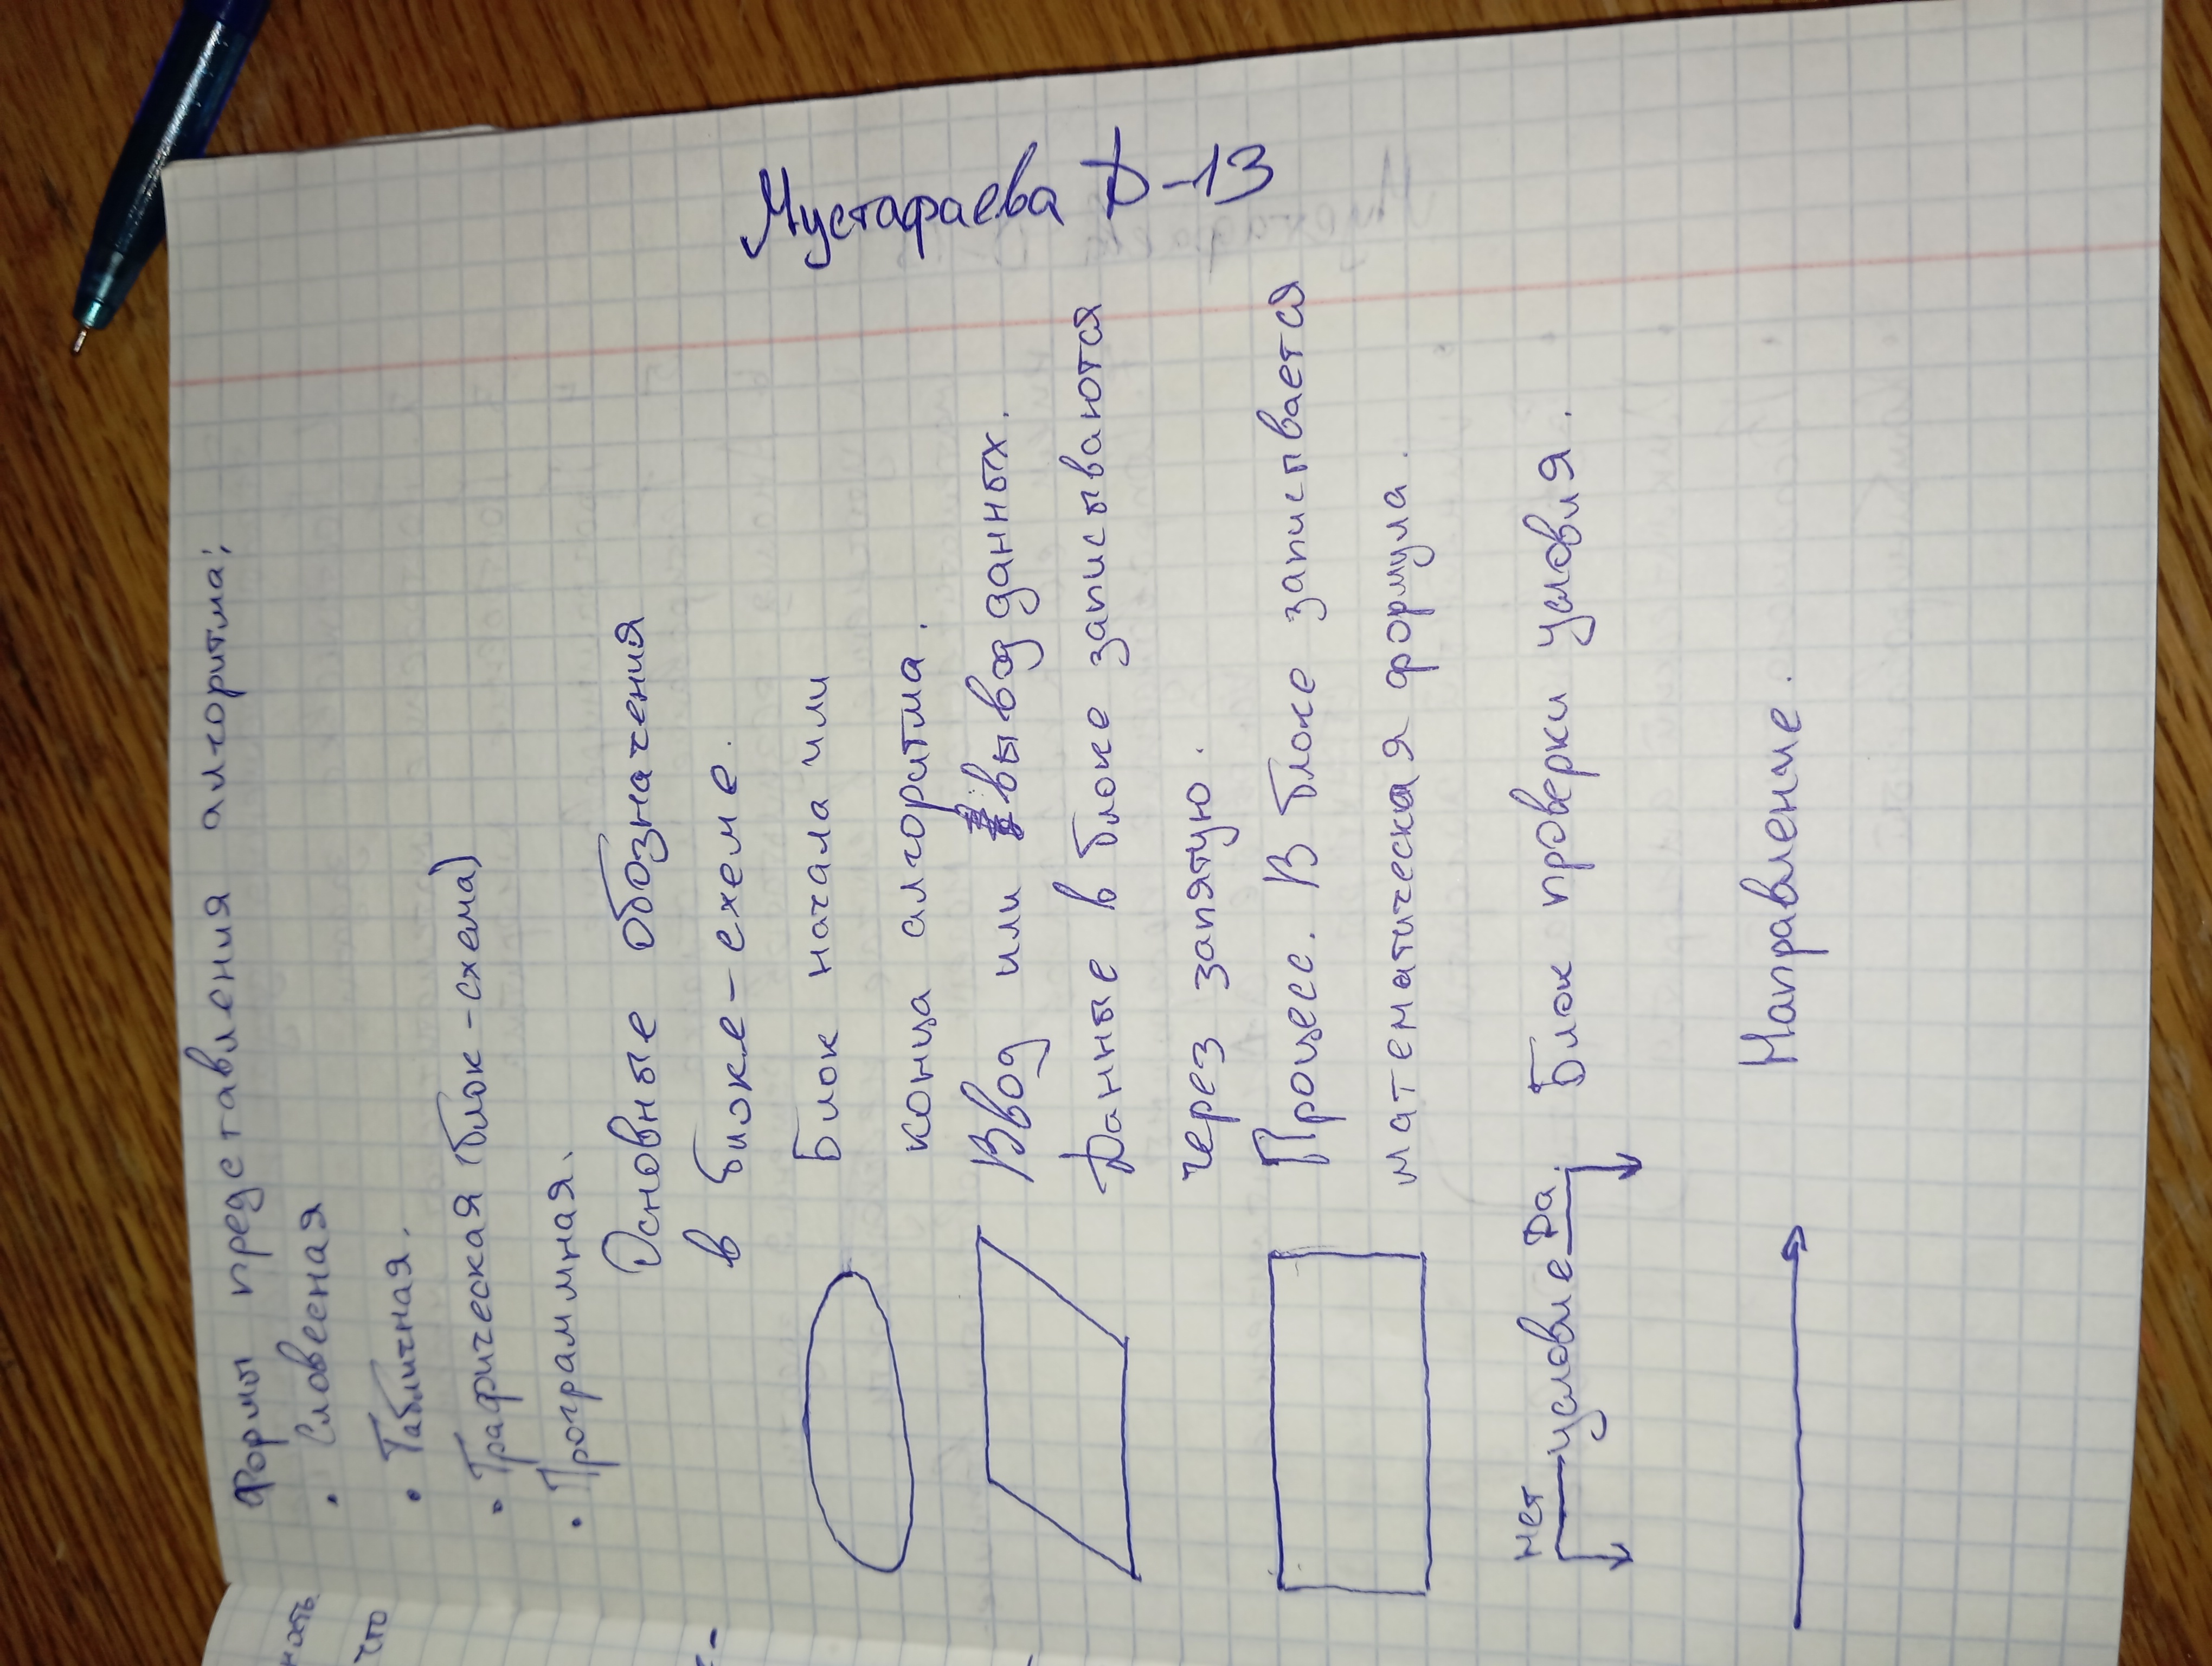 Формы представления алгоритма:
• Словесная
• Табличная.
• Графическая (блок-схема)
• Программная.
Основные обозначения
в блоке-схеме.
Блок начала или
конца алгоритма.
Ввод или вывод данных.
Данные в блоке записываются
через запятую.
Процесс. В блоке записывается
математическая формула.
нет условие Да Блок проверки условия.
Направление.
Мустафаева Д-13
что